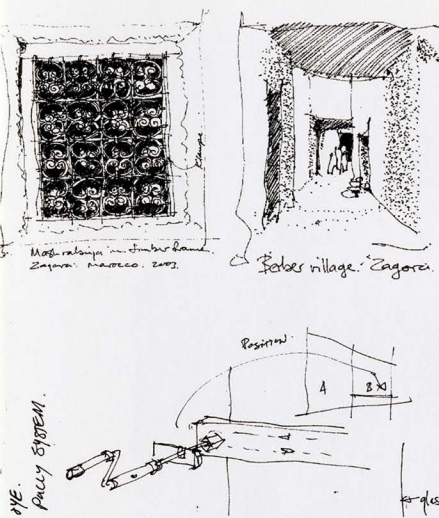 Mashrabiya in timber frame
Zagora. Marocco. 2003.
Berber village. Zagora.
Position.
A
B
PULLY SYSTEM.